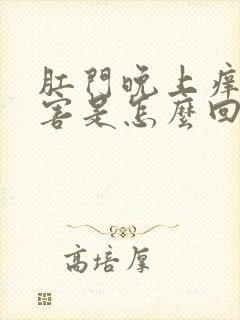 肛門晚上痒
害是怎麼回
高培厚